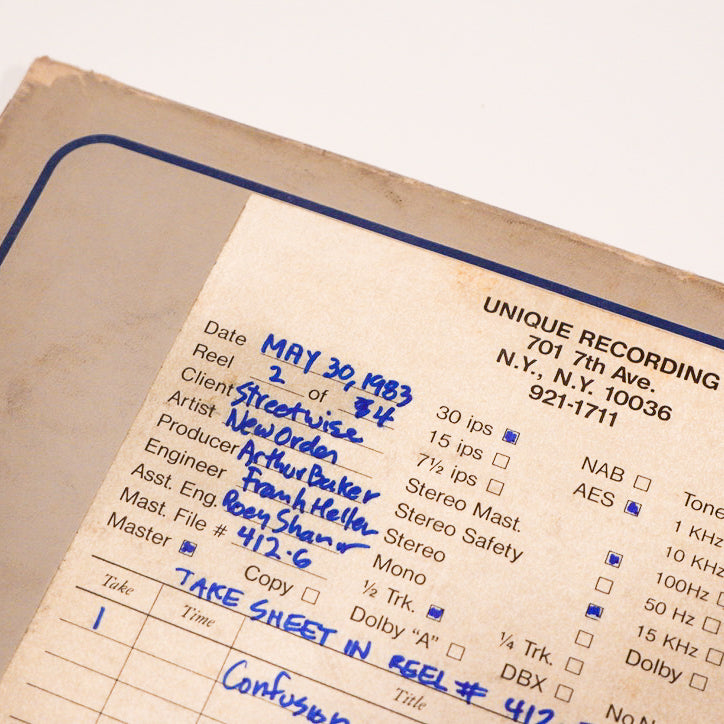 UNIQUE RECORDING
701 7th Ave.
N.Y., N.Y. 10036
921-1711
Date MAY 30, 1983
Reel 2 of 4
Client Streetwise
Artist New Order
Producer Arthur Baker
Engineer Frank Heller
Asst. Eng. Roey Shamir
Mast. File # 412.6
Master
Copy
30 ips
15 ips
7½ ips
Stereo Mast.
Stereo Safety
Stereo
Mono
½ Trk.
¼ Trk.
Dolby "A"
DBX
NAB
AES
Tone
1 KHz
10 KHz
100Hz
50 Hz
15 KHz
Dolby
No N
TAKE SHEET IN REEL # 412
Take Time Title
1 Confusion